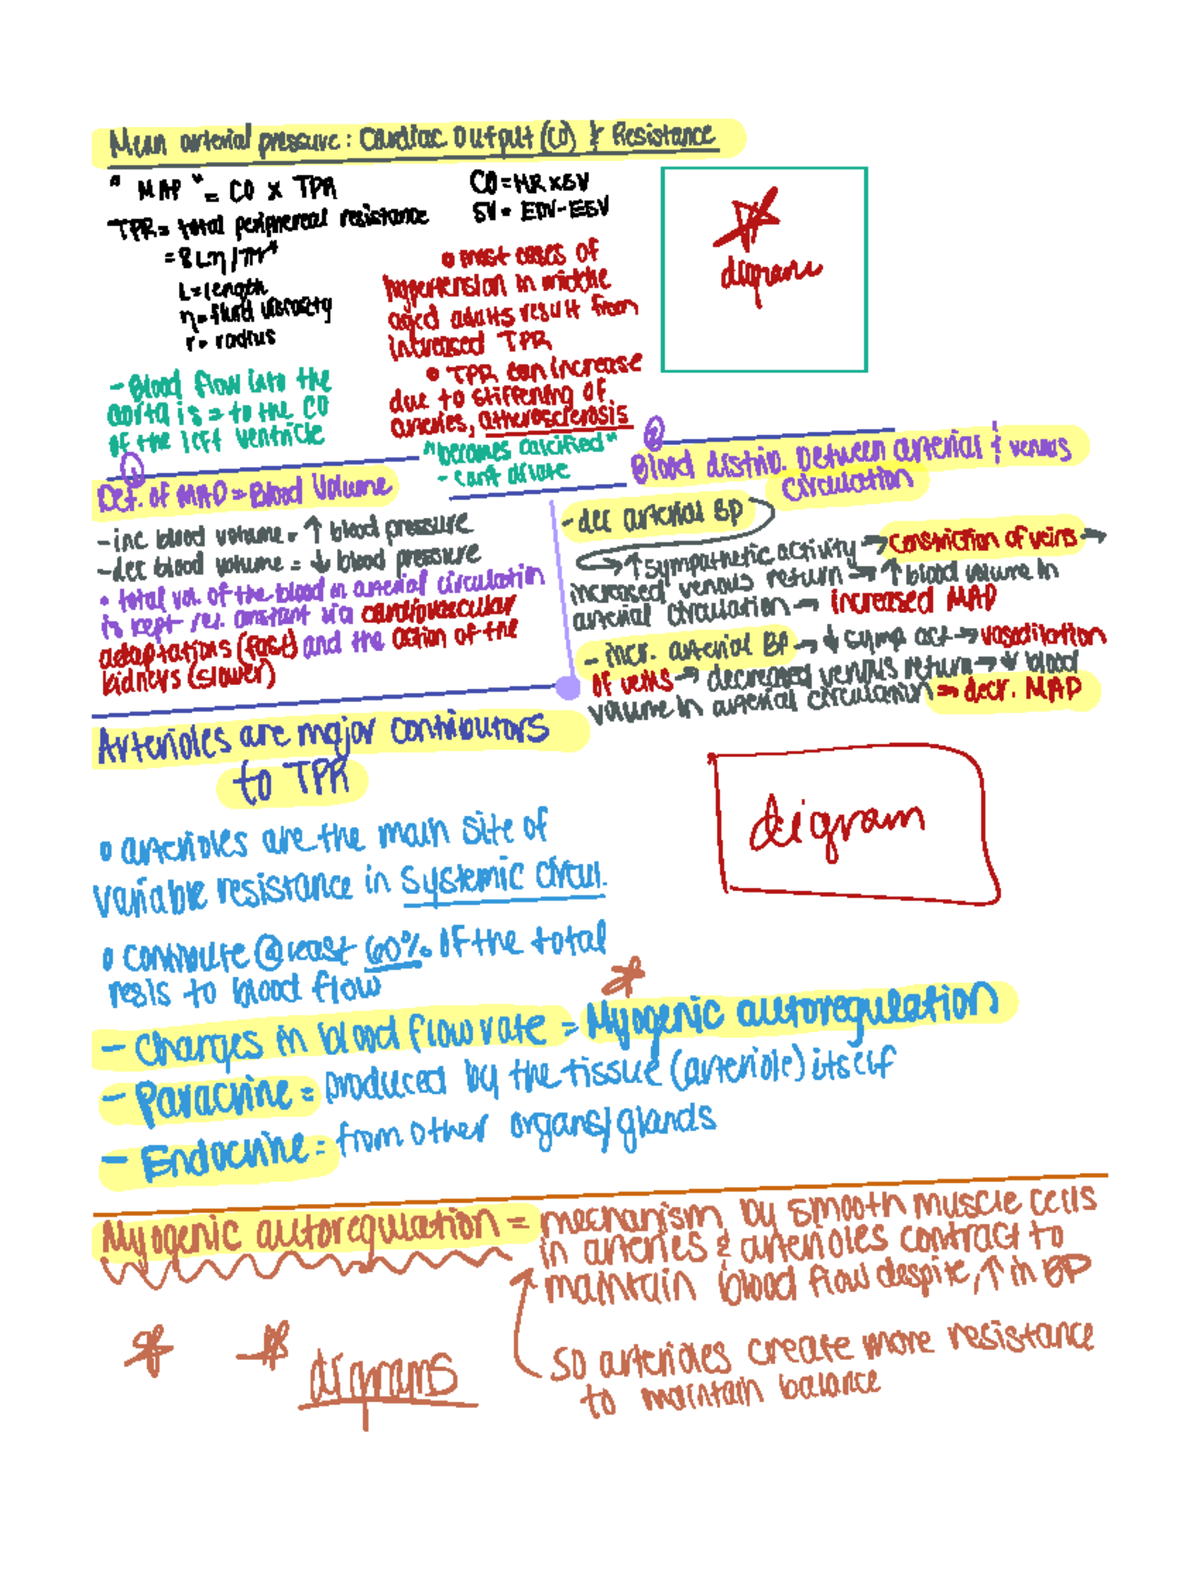 Mean arterial pressure: Cardiac Output (CO) & Resistance
" MAP " = CO x TPR
TPR = total peripheral resistance
= 8Lη/πr⁴
L = length
η = fluid viscosity
r = radius
CO = HR x SV
SV = EDV - ESV
• most cases of
hypertension in middle
aged adults result from
increased TPR
• TPR can increase
due to stiffening of
arteries, atherosclerosis
"becomes calcified"
- can't dilate
diagrams
- Blood flow into the
aorta is = to the CO
of the left ventricle
1
Det. of MAP = Blood Volume
- inc blood volume = ↑ blood pressure
- dec blood volume = ↓ blood pressure
• total vol. of the blood in arterial circulation
is kept rel. constant via cardiovascular
adaptations (fast) and the action of the
kidneys (slower)
2
Blood distrib. between arterial & venous
circulation
- dec arterial BP
→ ↑ sympathetic activity → constriction of veins →
increased venous return → ↑ blood volume in
arterial circulation → increased MAP
- incr. arterial BP → ↓ symp act → vasodilation
of veins → decreased venous return → ↓ blood
volume in arterial circulation → decr. MAP
Arterioles are major contributors
to TPR
digram
• arterioles are the main site of
variable resistance in systemic circul.
• contribute @ least 60% of the total
resis to blood flow
- Changes in blood flow rate = Myogenic autoregulation
- Paracrine = produced by the tissue (arteriole) itself
- Endocrine = from other organs/glands
Myogenic autoregulation = mechanism by smooth muscle cells
in arteries & arterioles contract to
maintain blood flow despite ↑ in BP
so arterioles create more resistance
to maintain balance
digrams